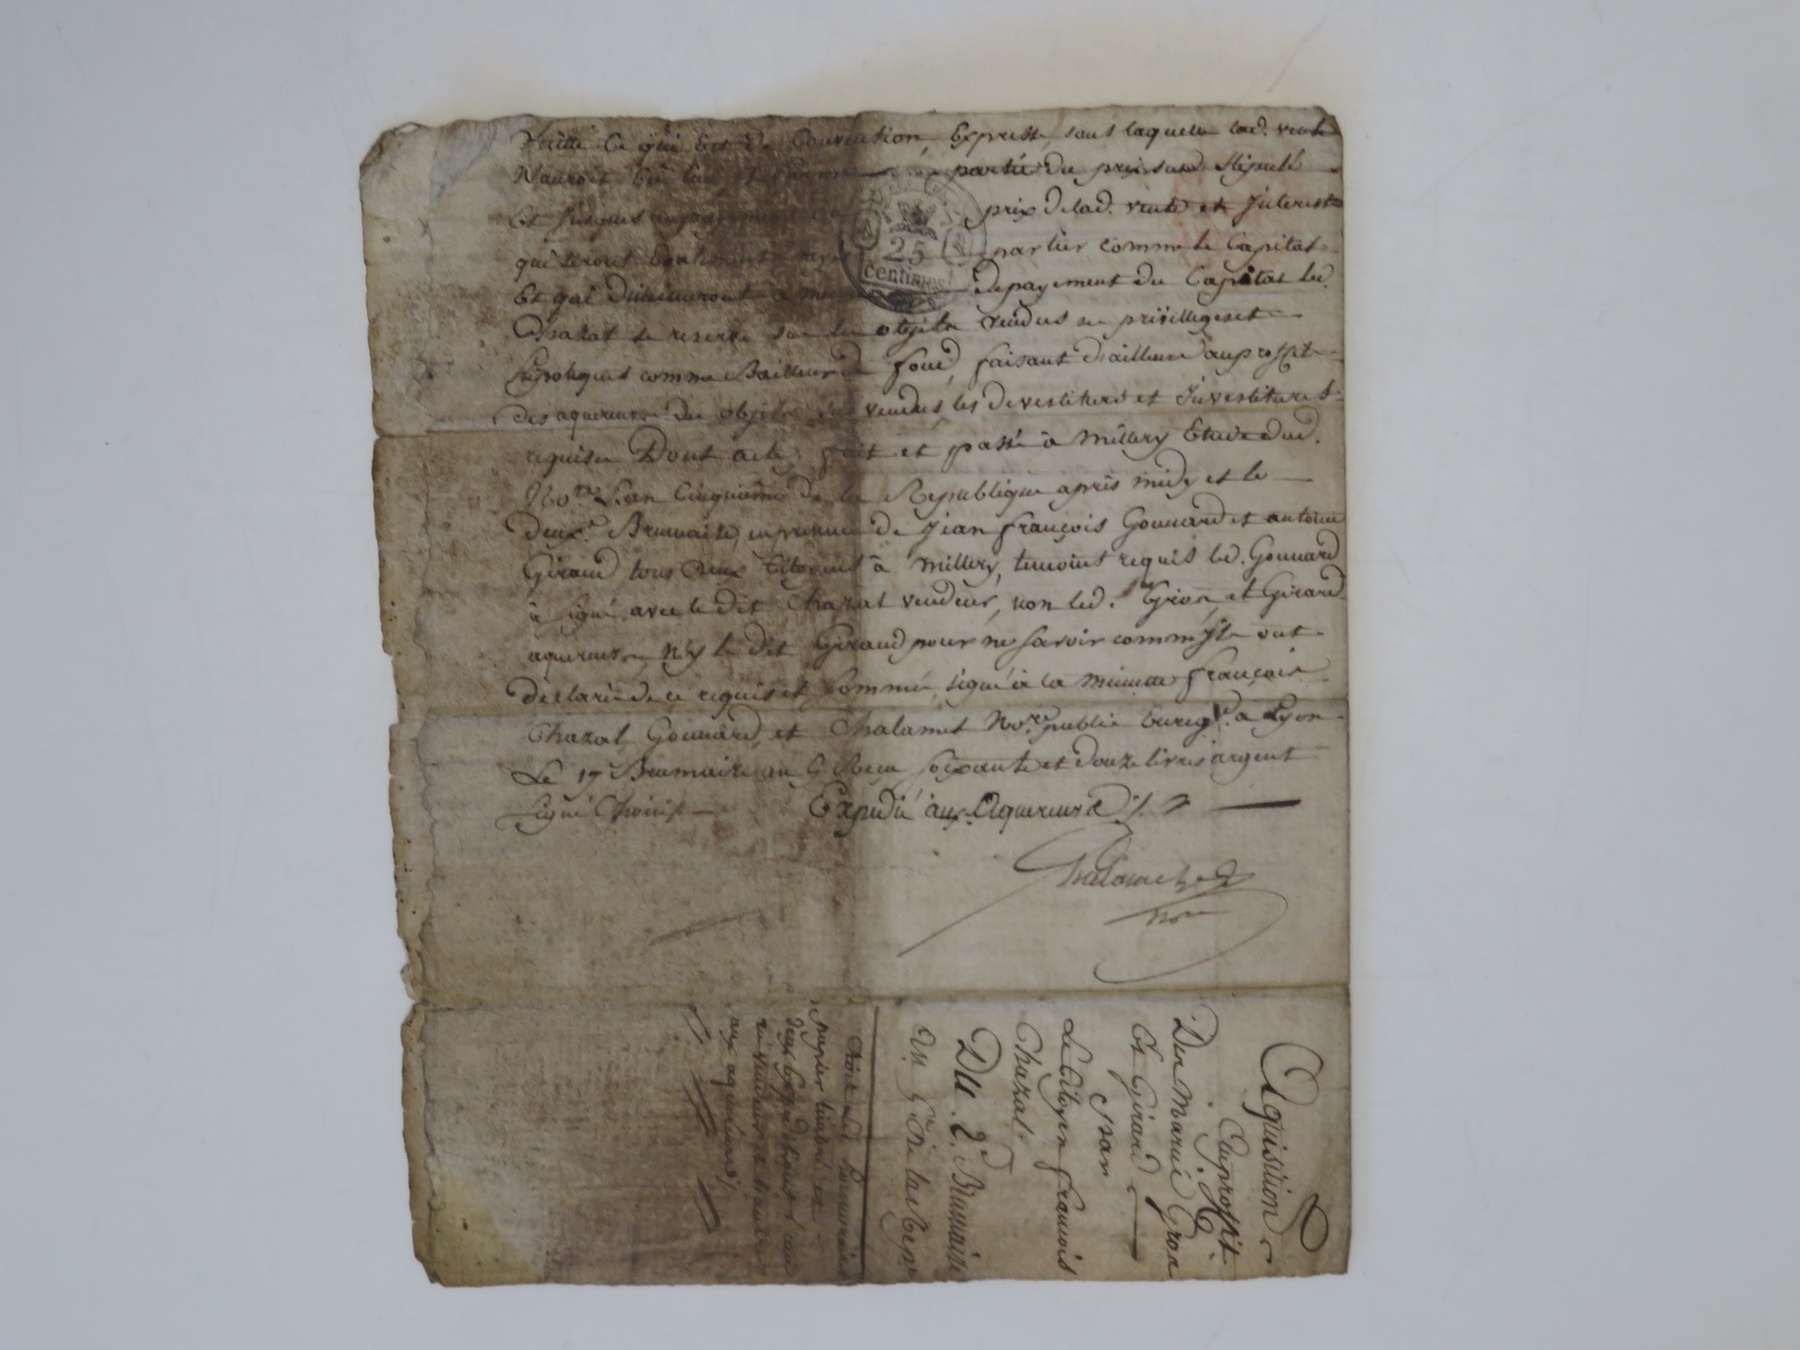 faitte ce qui Est de Convention Expresse, sans laquelle lad. vente
N'auroit Eu lieu et partie du prix susd. Stipulé
Et jusques au payement prix delad. vente et Jnterests
qui seront Egalement partier comme le Capital
Et qui diminueront a mesure depayement du Capital led.
Chazal se reserve sur les objets vendus ses privilleges et
hipoteques comme Bailleur de fond, faisant d'ailleurs auproffit
des aquereurs des objets sus vendus, les devestitures et Jnvestitures
requises Dont acte, fait et passé à Millery Etude dud.
No.re L'an Cinquieme de la Republique après midy et le
deux.e Brumaire, en presence de Jean françois Gounard et antoine
Giraud tous deux Citoyens à Millery, temoins requis led. Gounard
à signé avec le dit Chazal vendeur, non led. Grion, et Girard
aquereurs Ny le dit Giraud pour ne savoir comm'Jls ont
declaré de ce requis et sommé, signé à la minutte françois
Chazal, Gounard, et Chalamel No.re public Enreg.é a Lyon
Le 17 Brumaire an 5 Reçu soixante et douze livres argent
Signé Choin /.
Expedié aux Aquereurs /.
Chalamel
no.re
Aquisition
Auproffit
Des Marié Grion
Et Girard
par
Le Citoyen françois
Chazal.
DU. 2.e Brumaire
an 5.e de la Rep.e
papier timbré et
deux Expeditions une
au vendeur et l'autre
aux aquereurs /.
25
centimes